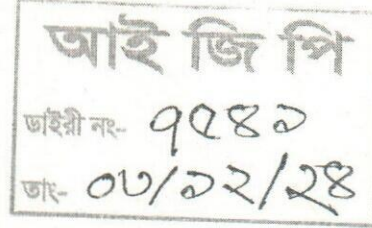 আই জি পি
ডাইরী নং- ৭৫৪১
তাং- ০৩/১২/২৪